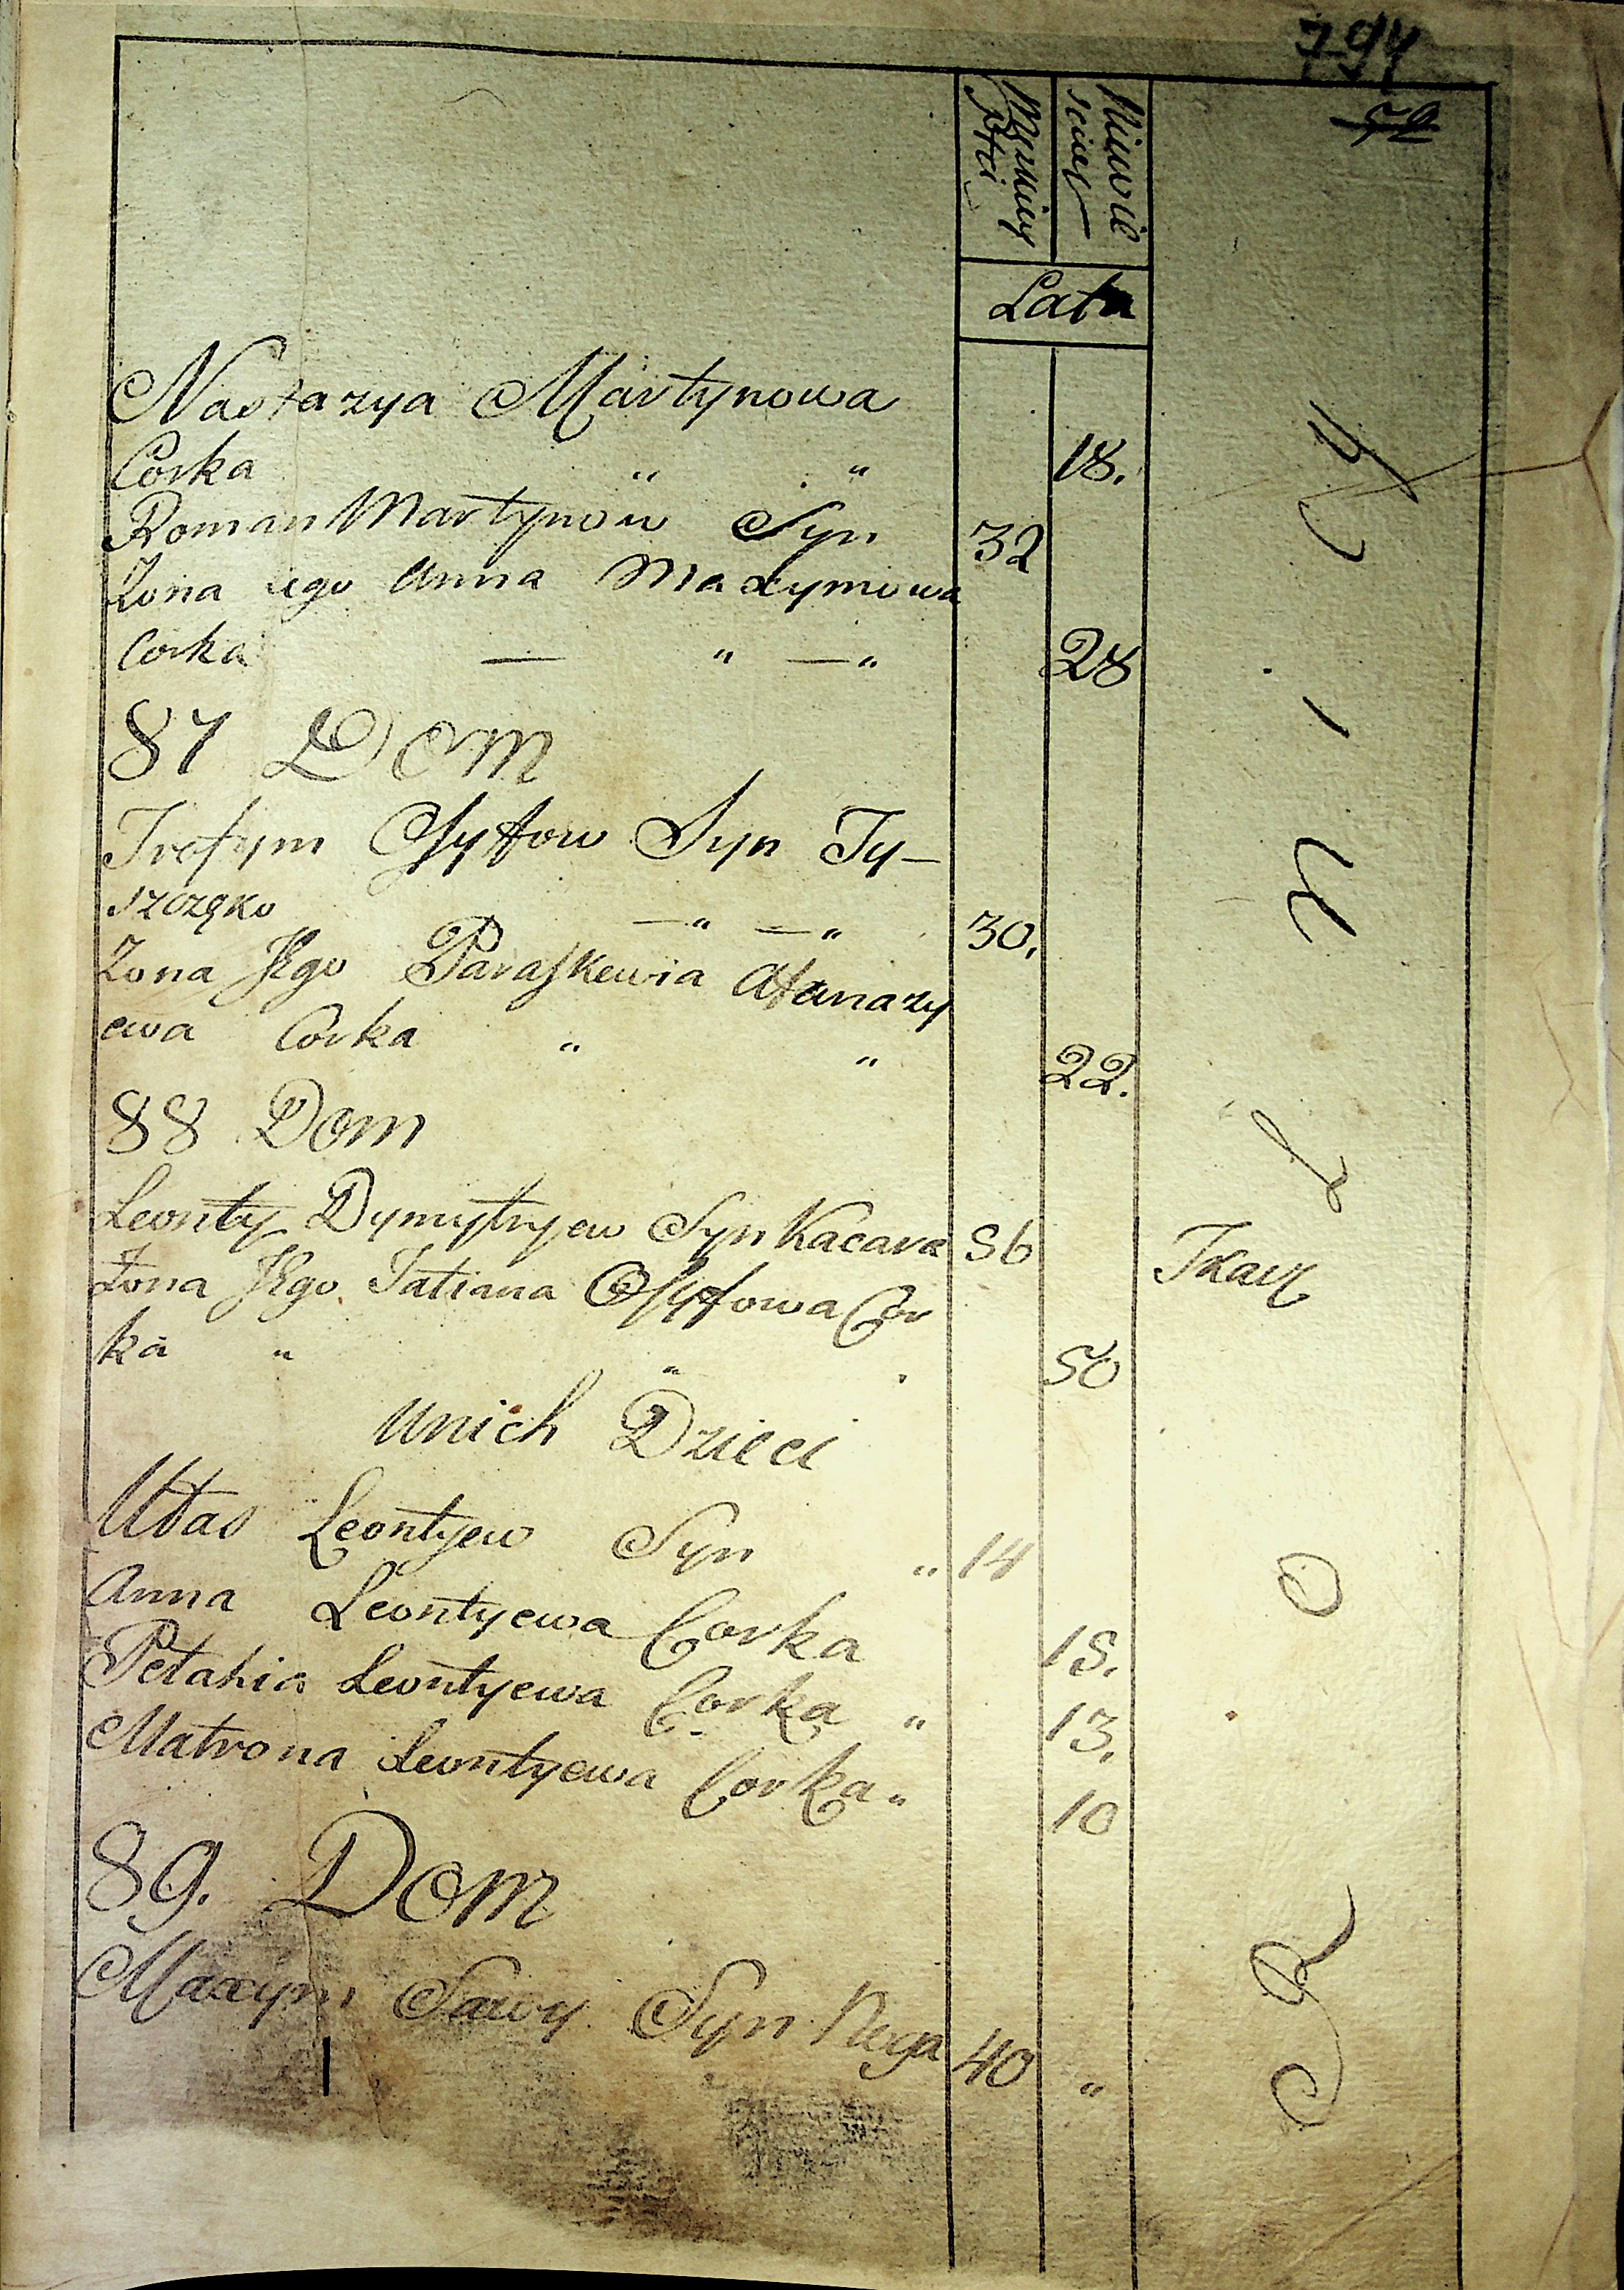 794
56
Męskiey Płci
Niewie
sciey
Lata
Nastazya Martynowa
Corka " " 18.
Roman Martynow Syn 32
Zona iego Anna Maxymowa
Corka — " — " 28
87 Dom
Trofym Osyffow Syn Ty-
szczęko — " — " 30.
Zona Jego Paraskewia Afanazy
ewa Corka " " 22.
88 Dom
Leonty Dymytryew Syn Kacara 56 Tkacz
Zona Jego Tatiana Osyffowa Cor
ka " " 50
Unich Dzieci
Ułas Leontyew Syn " 14
Anna Leontyewa Corka 15.
Pelahia Leontyewa Corka " 13.
Matrona Leontyewa Corka " 10
89. Dom
Maxym Sawy Syn Nega 40 "